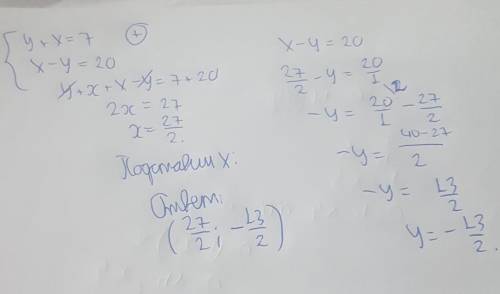 y + x = 7 (+)
x - y = 20
y + x + x - y = 7 + 20
2x = 27
x = 27/2.
Подставим x:
Ответ:
(27/2 ; -13/2)
x - y = 20
27/2 - y = 20/1
-y = 20/1 \2 - 27/2
-y = 40-27/2
-y = 13/2
y = -13/2.